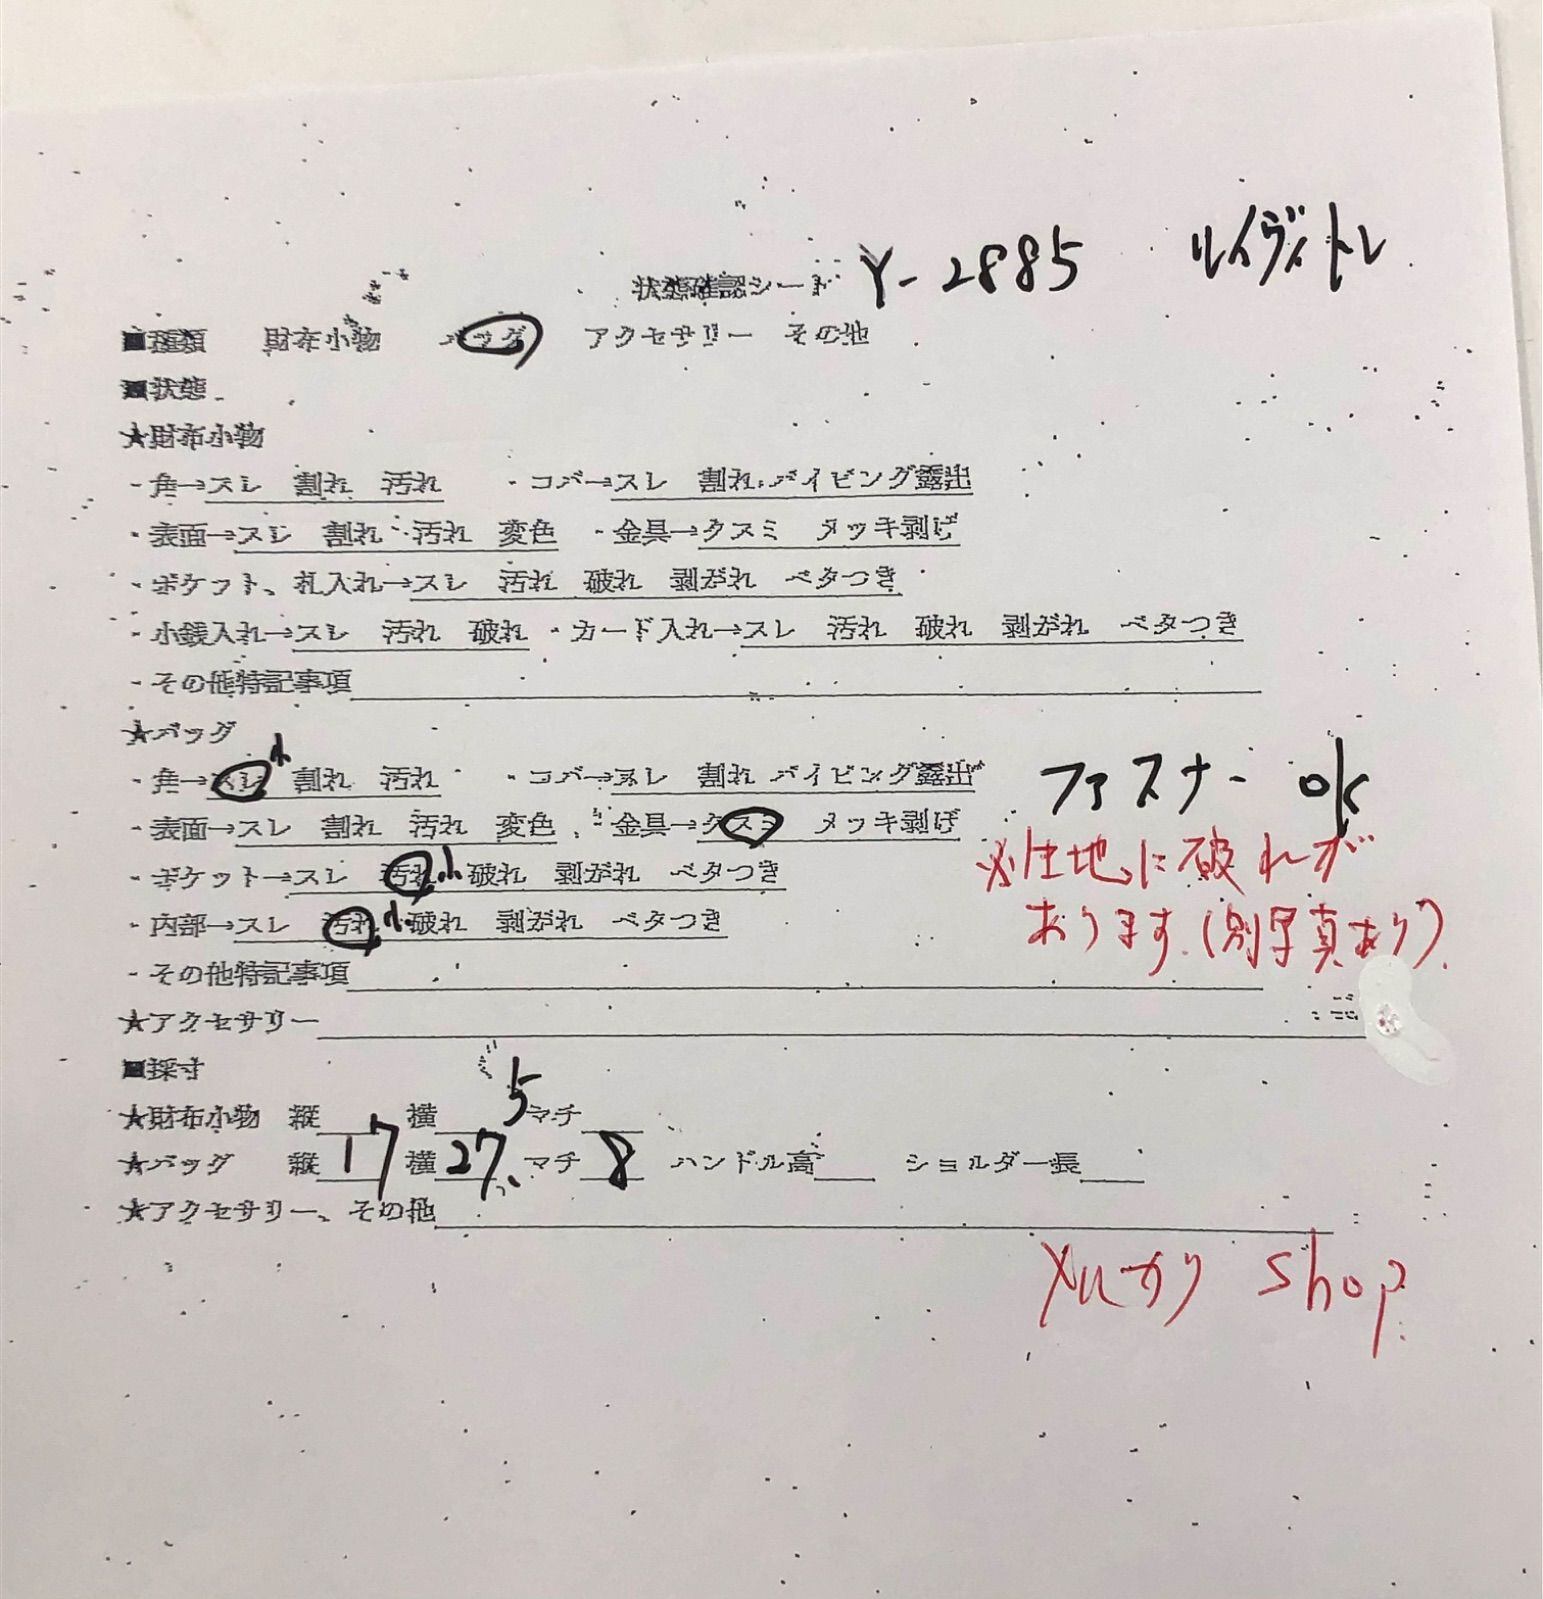 状態確認シート Y-2885 ルイヴィトン
■種類 財布小物 バッグ アクセサリー その他
■状態
★財布小物
・角→スレ 割れ 汚れ ・コバ→スレ 割れ パイピング露出
・表面→スレ 割れ 汚れ 変色 ・金具→クスミ メッキ剥げ
・ポケット、札入れ→スレ 汚れ 破れ 剥がれ ベタつき
・小銭入れ→スレ 汚れ 破れ ・カード入れ→スレ 汚れ 破れ 剥がれ ベタつき
・その他特記事項
★バッグ
・角→スレ小 割れ 汚れ ・コバ→スレ 割れ パイピング露出 ファスナー ok
・表面→スレ 割れ 汚れ 変色 ・金具→クスミ メッキ剥げ
※生地に破れが
・ポケット→スレ 汚れ小 破れ 剥がれ ベタつき
おります.(別写真あり).
・内部→スレ 汚れ小 破れ 剥がれ ベタつき
・その他特記事項
★アクセサリー
■採寸
★財布小物 縦 横 マチ
★バッグ 縦17 横27.5 マチ8 ハンドル高 ショルダー長
★アクセサリー、その他
メルカリ shop